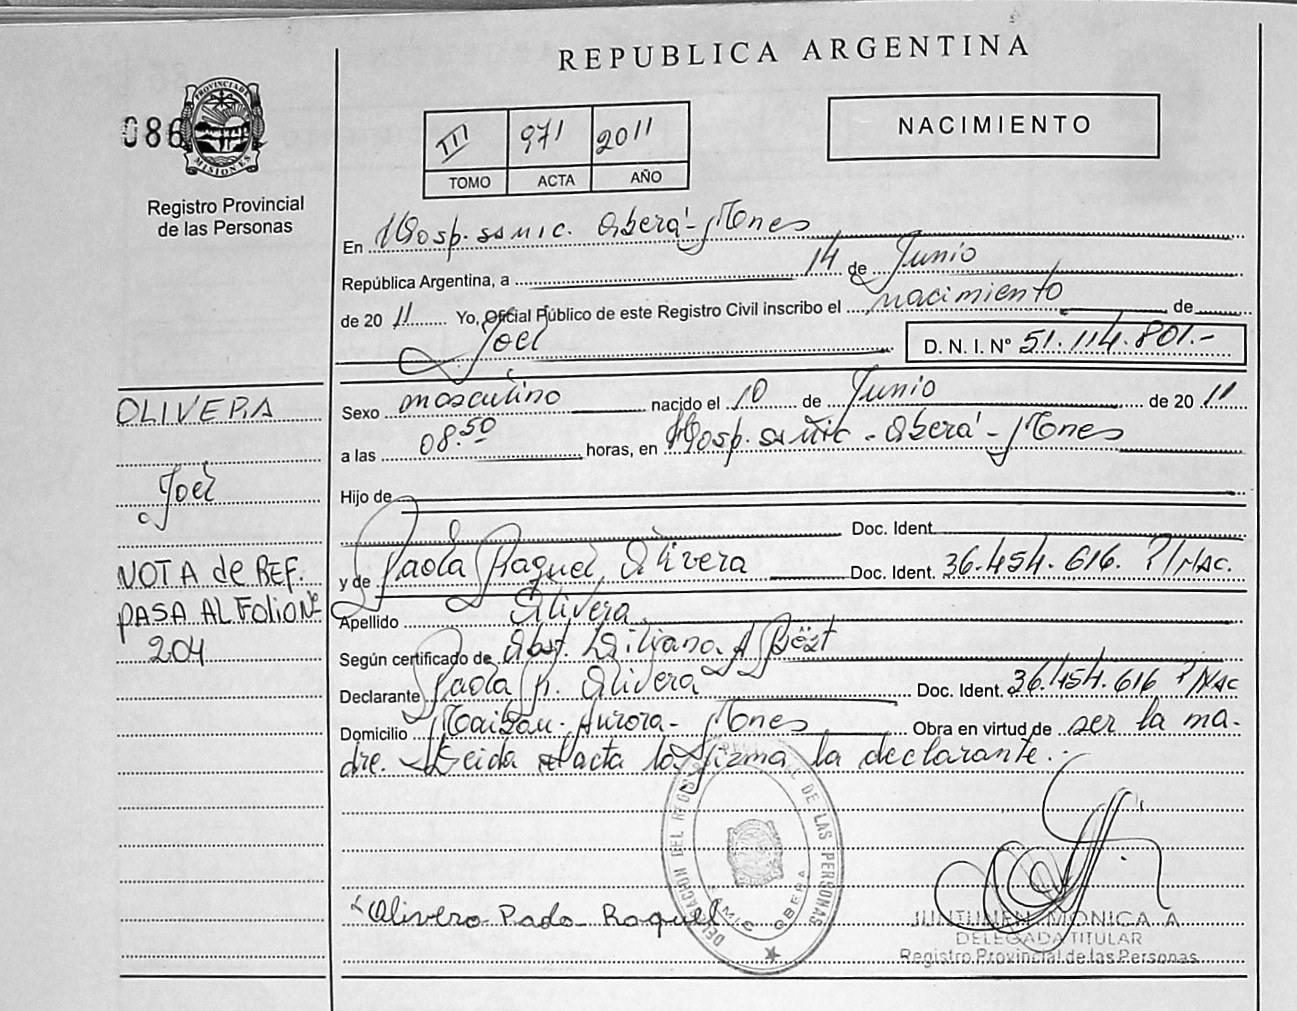 REPUBLICA ARGENTINA
086
PROVINCIA DE MISIONES
Registro Provincial
de las Personas
III 971 2011
TOMO ACTA AÑO
NACIMIENTO
En Hosp. samic. Oberá - Mnes
República Argentina, a 14 de Junio
de 2011 Yo, Oficial Público de este Registro Civil inscribo el nacimiento de
Joel D.N.I. Nº 51.114.801.-
Sexo masculino nacido el 10 de Junio de 2011
a las 08.50 horas, en Hosp. samic - Oberá - Mnes
Hijo de
Doc. Ident.
y de Paola Raquel Olivera Doc. Ident. 36.454.616. P/Nac.
Apellido Olivera
Según certificado de Obst. Liliana A
Declarante Paola R. Olivera Doc. Ident. 36.454.616 P/Nac
Domicilio Aurora - Mnes Obra en virtud de ser la ma-
dre. Leida el acta la firma la declarante.-
OLIVERA
Joel
NOTA de REF.
PASA AL FOLIO Nº
204
DELEGACION DEL REGISTRO PROVINCIAL DE LAS PERSONAS
SAMIC OBERA
Olivera Paola Raquel
JUNTUNEN MONICA A
DELEGADA TITULAR
Registro Provincial de las Personas